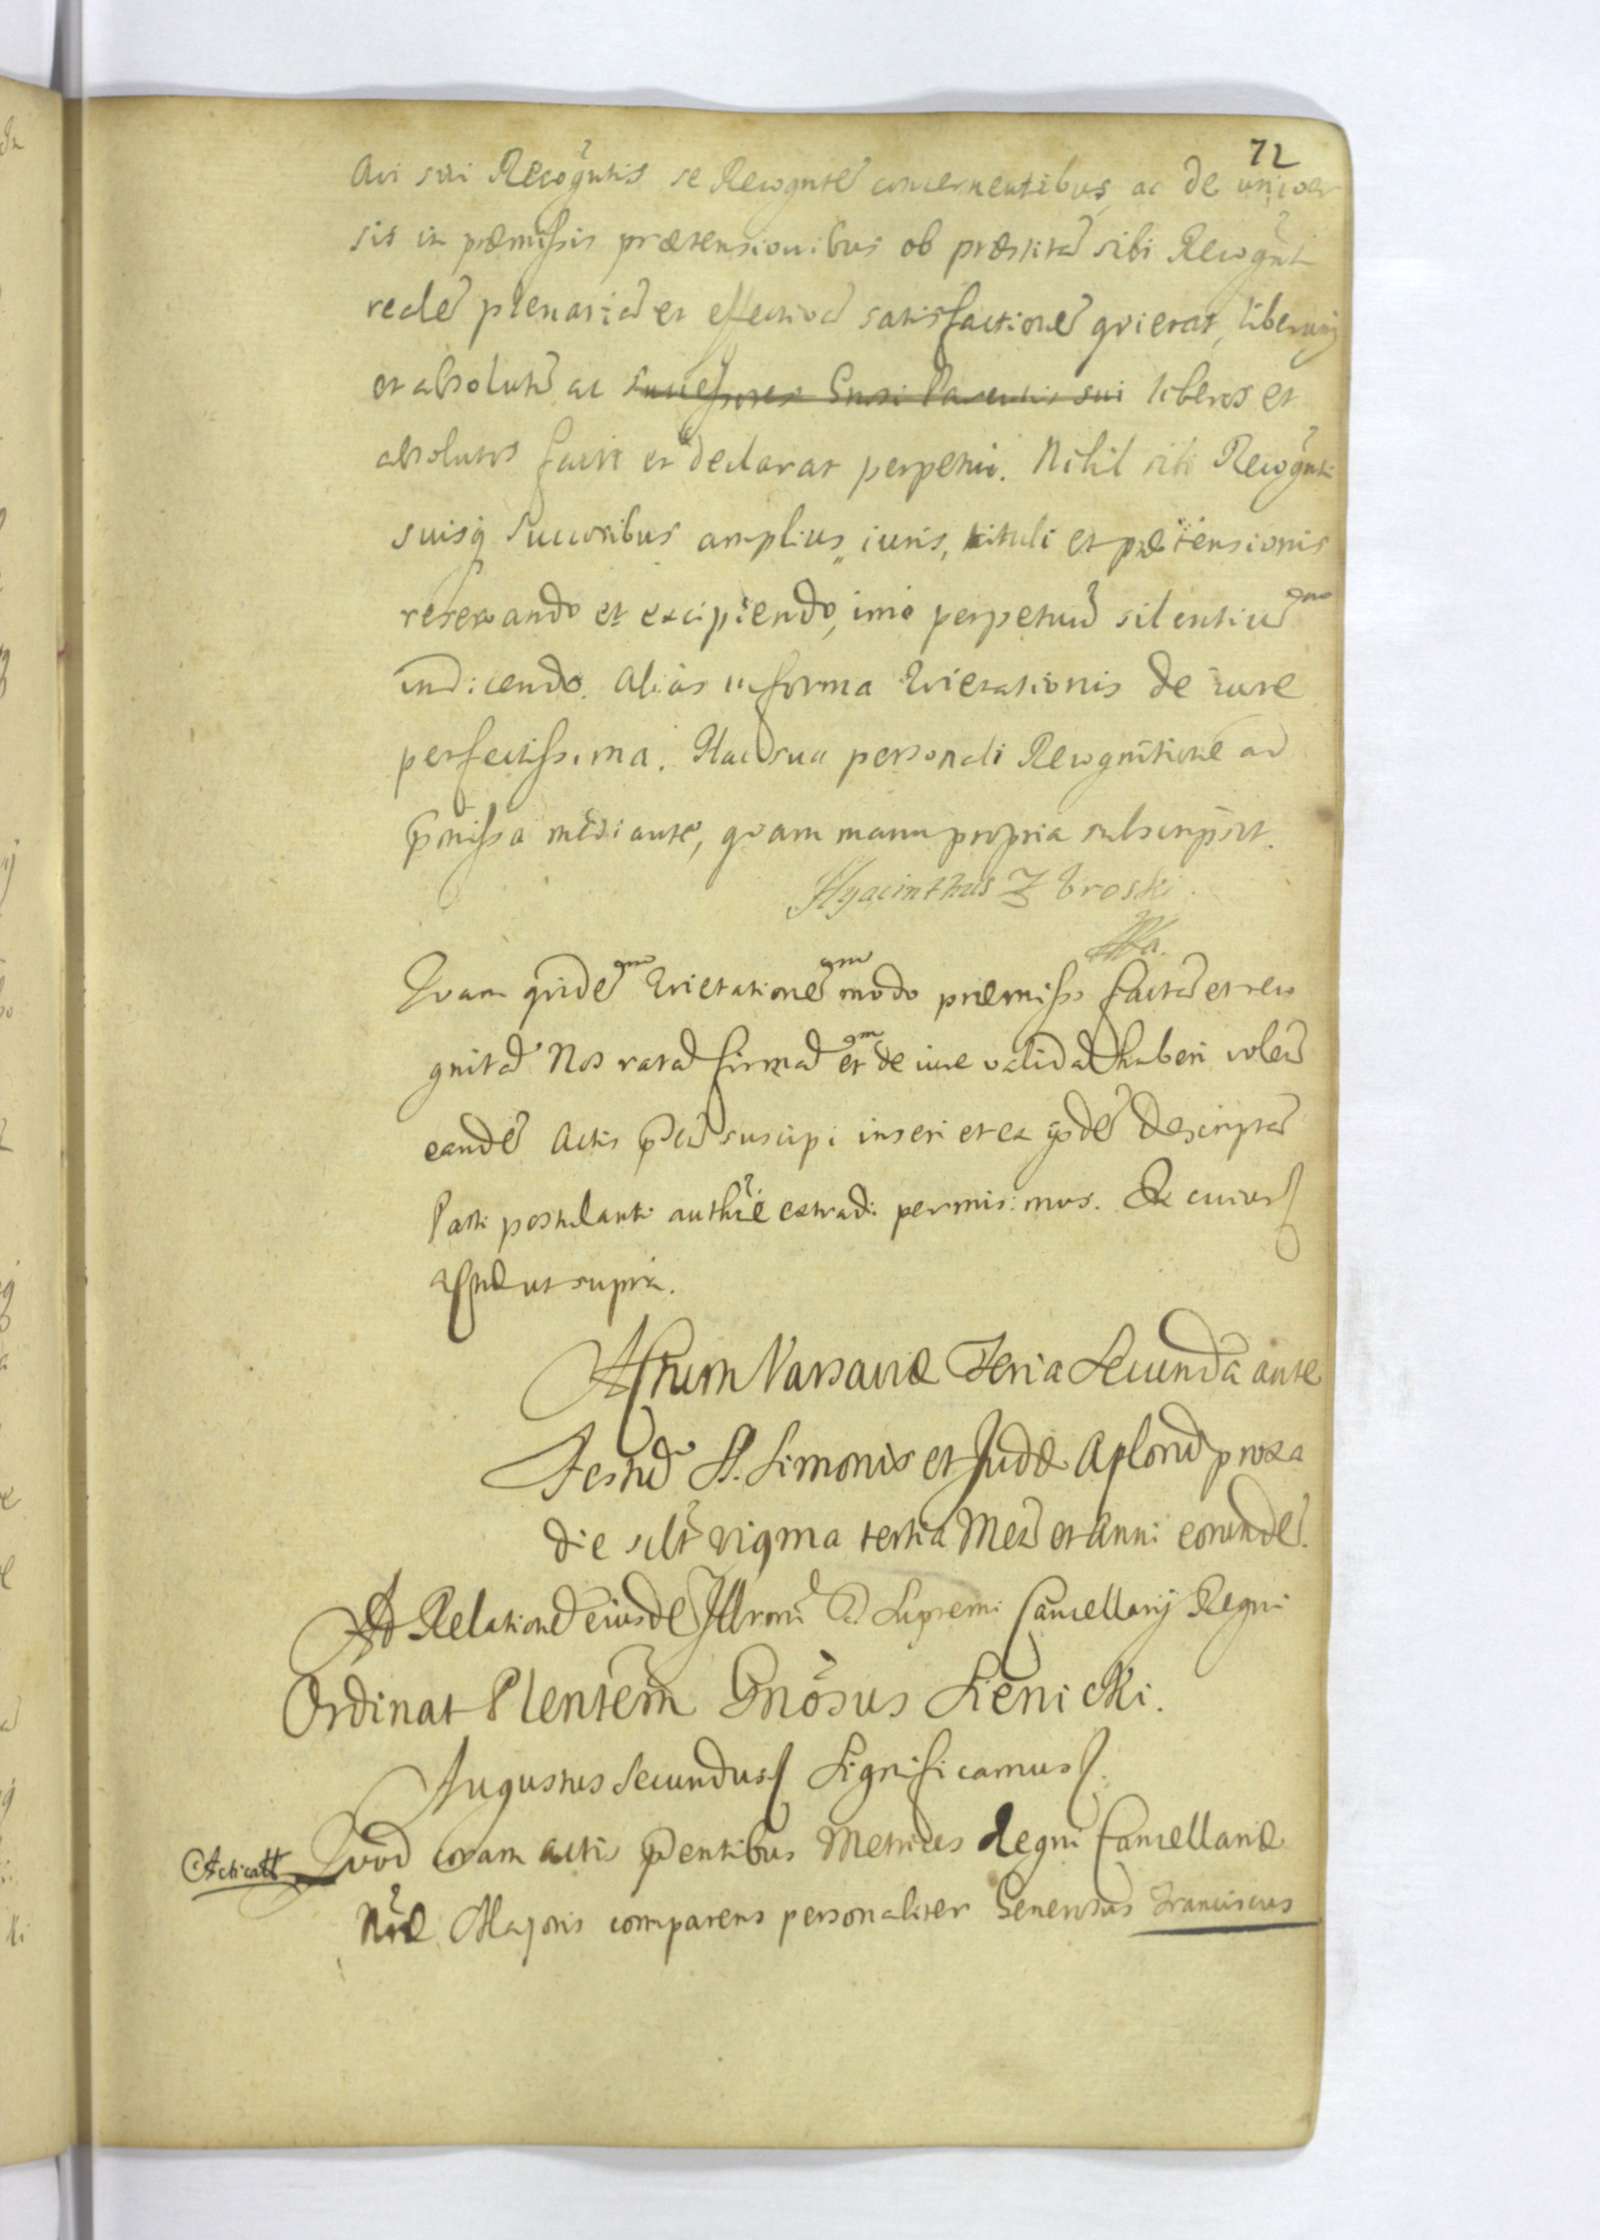 72
Avi sui Recogn̄tis se Recogn̄te concernentibus ac de univer
sis in præmissis prætensionibus ob præstita sibi Recogn̄ti
reale plenaria et effectiva satisfactione quietat, liberumq
et absolutu ac successores Gnosi Parentis sui liberos et
absolutos facit et declarat perpetuo. Nihil sibi Recogn̄ti
suisq Succoribus amplius, iuris, tituli et prætensionis
reservando et excipiendo, imo perpetuu silentiu
indicendo. Alias in forma Quietationis de iure
perfectissima. Hac sua personali Recognitione ad
p̄missa mediante, quam manu propria subscripsit.
Hyacinthus Zbroski
Quam quide Quietatione modo præmisso facta et reco
gnita Nos rata firma et de iure valida haberi volen
eande Actis p̄ntu suscipi inseri et ex ysde descripta
Parti postulanti authē extradi permisimus. In cuius
Actū ut supra.
Actum Varsaviæ Feria Secunda ante
Festu SS. Simonis et Judæ Aplorū proxa
die scilt vigma tertia Mens et Anni eorunde.
Ad Relatione eiusde Illrmi D. Supremi Cancellarij Regni
Ordinat Plentem Gnōsus Sienicki.
Augustus Secundus Significamus
Acticatt Quod coram actis p̄ntibus Metrices Regni Cancellariæ
Nræ Majoris comparens personaliter Generosus Franciscus